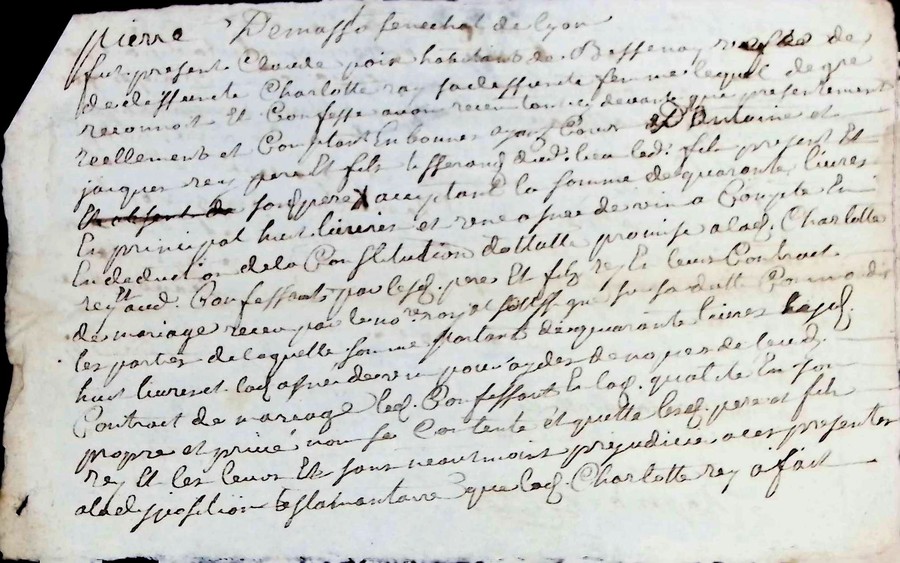 pierre Demasso senechal de lyon
fut present Claude poix habitant de Bessenay
de deffuncte Charlotte rey sa deffuncte femme lequel de gre
reconnoit Et Confesse avoir receu tant cy devant que presentement
reellement et Comptant En bonnes D'Antoine et
jacques rey pere Et fils dud. lieu led. fils present Et
sond. pere acceptant la somme de quarante livres
En principal huit livres et une asnee de vin a Compte Et
En deduction de la Constitution dottalle promise a lad. Charlotte
rey Confessant par lesd. pere Et fils rey En leur Contract
de mariage receu par le no.re que sur sa datte
les parties de laquelle somme partant desd. quarante livres
huit livres et lad. asnee de vin pour de nopces de
Contract de mariage led. Confessant En lad. qualité En son
propre et privé nom se Contente et quitte lesd. pere et fils
rey Et les leurs Et sans neantmoins prejudicier a ces presentes
a la disposition testamantaire que lad. Charlotte rey a fait